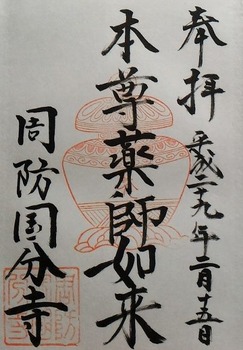 奉拝
平成二十九年二月十五日
本尊薬師如来
周防国分寺